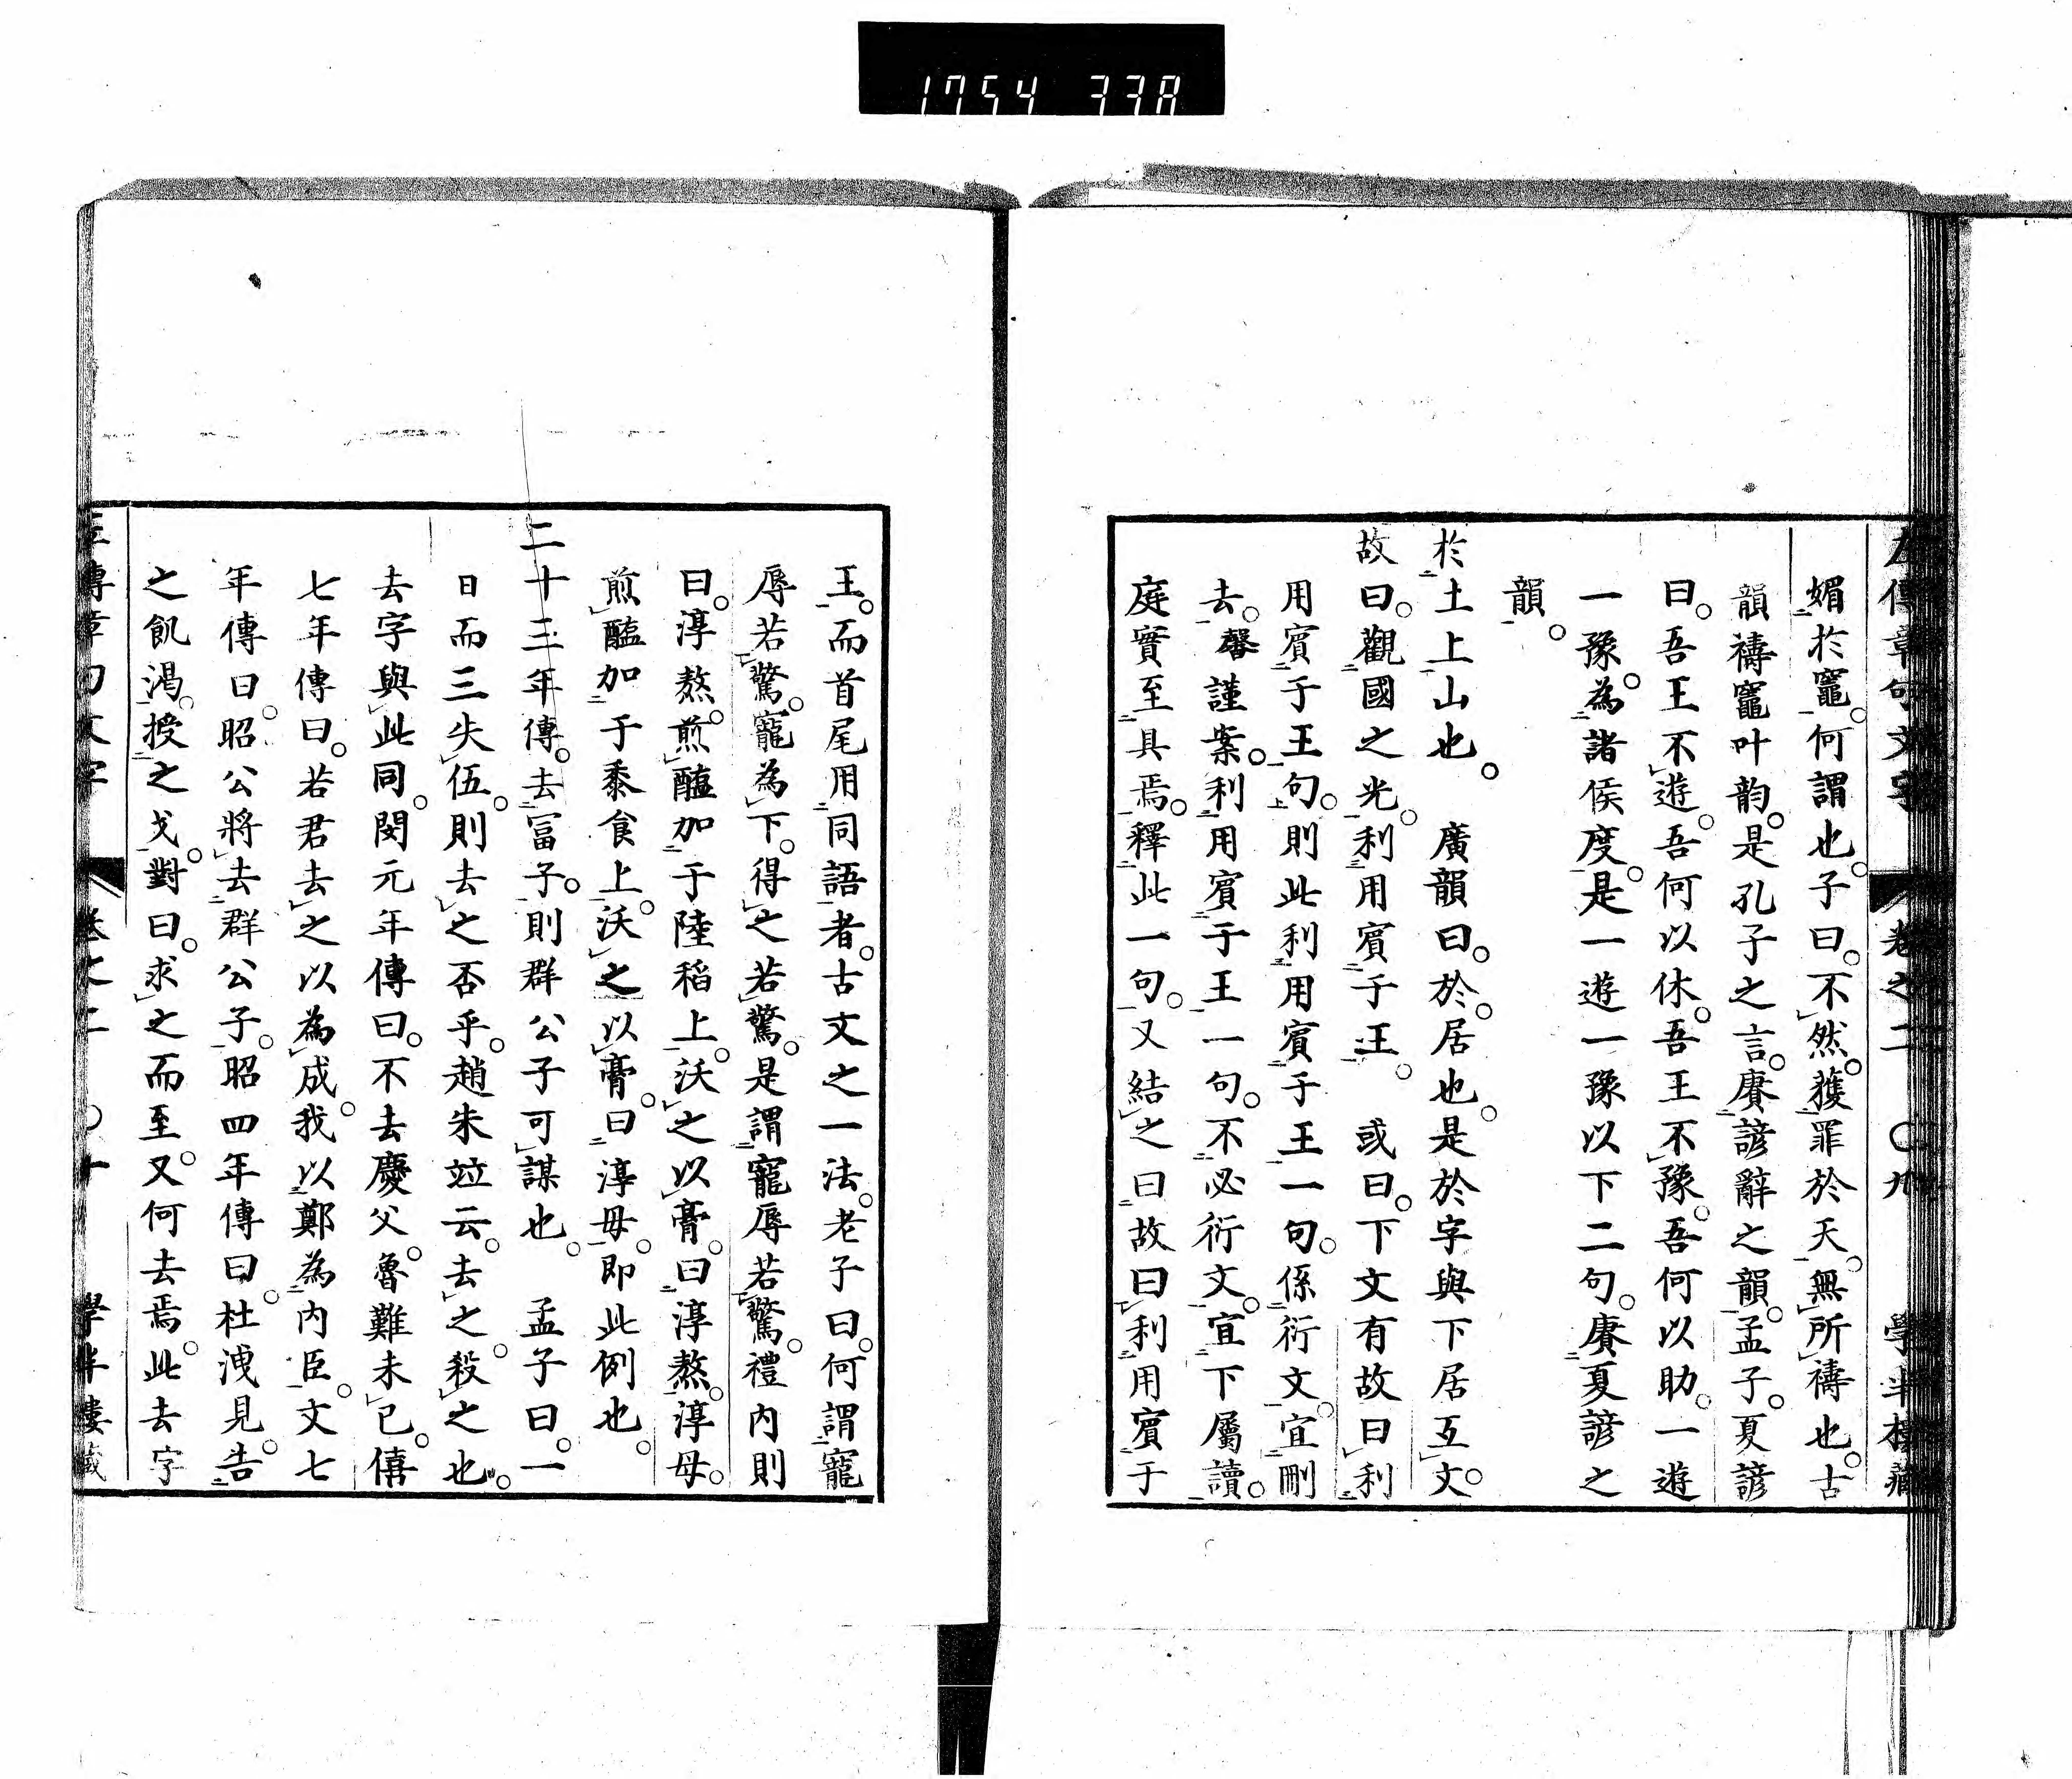 1754 338
左傳章句文字 卷之二 〇九 學半樓藏
媚於竈。何謂也。子曰。不然。獲罪於天。無所禱也。古
韻禱竈叶韵。是孔子之言。賡諺辭之韻。孟子。夏諺
曰。吾王不遊。吾何以休。吾王不豫。吾何以助。一遊
一豫。為諸侯度。是一遊一豫以下二句。賡夏諺之
韻。
於土上山也。 廣韻曰。於。居也。是於字與下居互文。
故曰。觀國之光。利用賓于王。 或曰。下文有故曰利
用賓于王句。則此利用賓于王一句。係衍文。宜刪
去。馨謹案。利用賓于王一句。不必衍文。宜下屬讀。
庭實至具焉。釋此一句。又結之曰故曰利用賓于
王。而首尾用同語者。古文之一法。老子曰。何謂寵
辱若驚。寵為下。得之若驚。是謂寵辱若驚。禮內則
曰。淳熬。煎醢加于陸稻上。沃之以膏。曰淳熬。淳毋。
煎醢加于黍食上。沃之以膏。曰淳毋。即此例也。
二十三年傳。去富子。則群公子可謀也。 孟子曰。一
日而三失伍。則去之否乎。趙朱竝云。去之。殺之也。
去字與此同。閔元年傳曰。不去慶父。魯難未已。僖
七年傳曰。若君去之以為成。我以鄭為內臣。文七
年傳曰。昭公將去群公子。昭四年傳曰。杜洩見。告
之飢渴。授之戈。對曰。求之而至。又何去焉。此去字
左傳章句文字 卷之二 〇十 學半樓藏